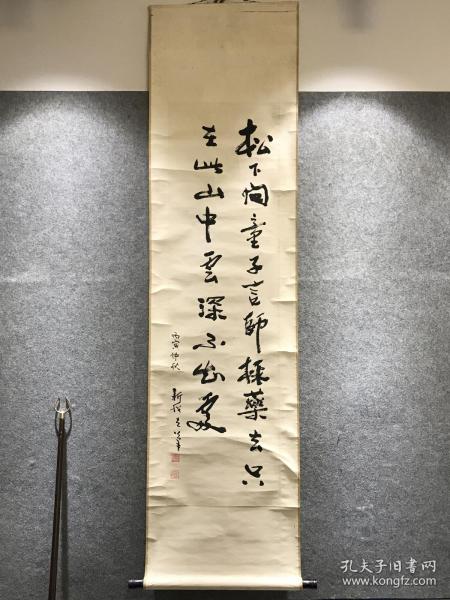 松下問童子言師採藥去只
在此山中雲深不知處
丙寅仲秋
孔夫子旧书网
www.kongfz.com